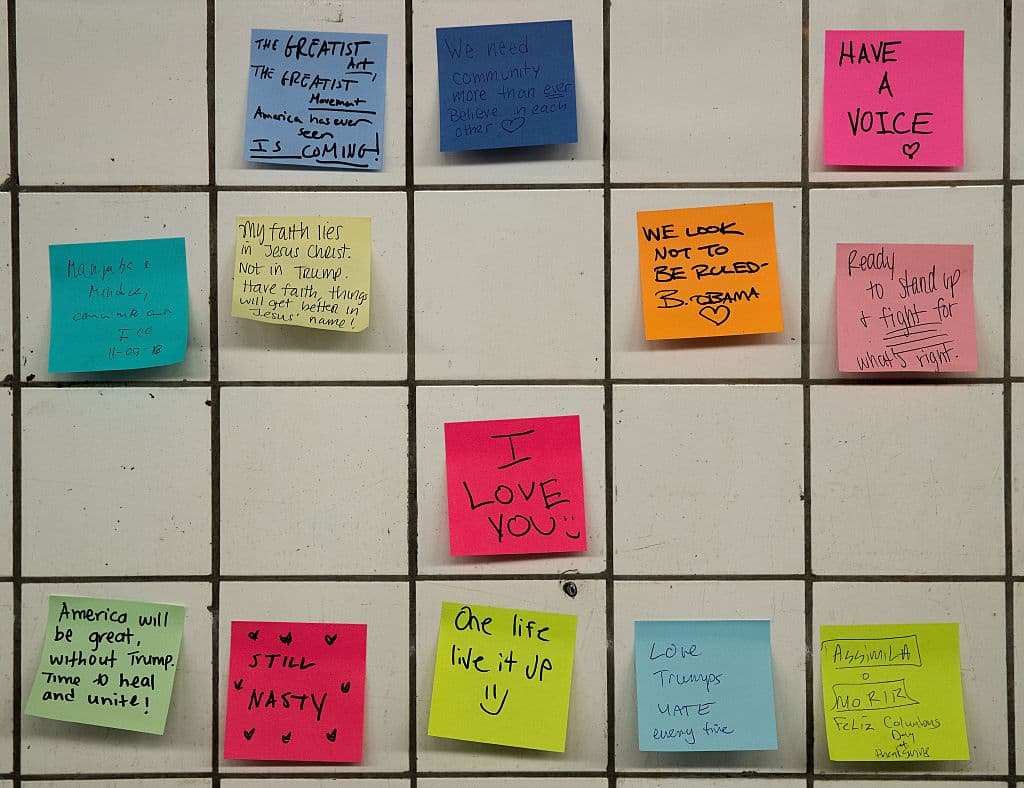 THE GREATIST
Art,
THE GREATIST
Movement
America has ever
seen
IS COMING!
We need
community
more than ever
Believe in each
other ♡
HAVE
A
VOICE
♡
11-09-16
My faith lies
in Jesus Christ.
Not in Trump.
Have faith, things
will get better in
Jesus' name!
WE LOOK
NOT TO
BE RULED-
B. OBAMA
♡
Ready
to stand up
+ fight for
what's right.
I
LOVE
YOU :)
America will
be great,
without Trump.
Time to heal
and unite!
STILL
NASTY
One life
live it up
Love
Trumps
HATE
every time
ASSIMILA
O
MORIR
FELIZ Columbus
Day